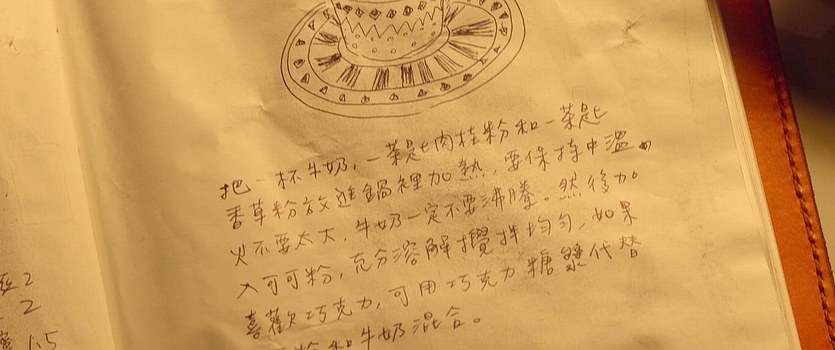 把一杯牛奶,一茶匙肉桂粉和一茶匙
香草粉放進鍋裡加熱,要保持中溫,
火不要太大,牛奶一定不要沸騰。然後加
入可可粉,充分溶解攪拌均勻,如果
喜歡巧克力,可用巧克力糖漿代替
粉和牛奶混合。
2
2
1.5